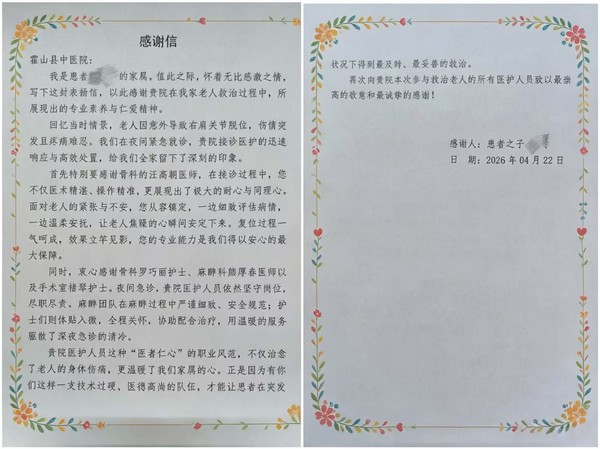 感谢信
霍山县中医院：
我是患者的家属，值此之际，怀着无比感激之情，
写下这封表扬信，以此感谢贵院在我家老人救治过程中，所
展现出的专业素养与仁爱精神。
回忆当时情景，老人因意外导致右肩关节脱位，伤情突
发且疼痛难忍。我们在夜间紧急就诊，贵院接诊医护的迅速
响应与高效处置，给我们全家留下了深刻的印象。
首先特别要感谢骨科的汪高朝医师，在接诊过程中，您
不仅医术精湛、操作精准，更展现出了极大的耐心与同理心。
面对老人的紧张与不安，您从容镇定，一边细致评估病情，
一边温柔安抚，让老人焦躁的心瞬间安定下来。复位过程一
气呵成，效果立竿见影，您的专业能力是我们得以安心的最
大保障。
同时，衷心感谢骨科罗巧丽护士、麻醉科熊厚春医师以
及手术室禇翠护士。夜间急诊，贵院医护人员依然坚守岗位，
尽职尽责。麻醉团队在麻醉过程中严谨细致、安全规范；护
士们则体贴入微，全程关怀，协助配合治疗，用温暖的服务
驱散了深夜急诊的清冷。
贵院医护人员这种“医者仁心”的职业风范，不仅治愈
了老人的身体伤痛，更温暖了我们家属的心。正是因为有你
们这样一支技术过硬、医德高尚的队伍，才能让患者在突发
状况下得到最及时、最妥善的救治。
再次向贵院本次参与救治老人的所有医护人员致以最崇
高的敬意和最诚挚的感谢！
感谢人：患者之子
日 期：2026 年 04 月 22 日